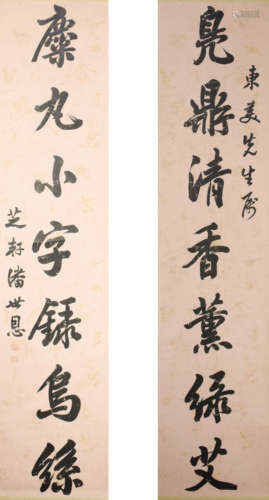 東美先生属
鳧鼎清香薰綠艾
麋丸小字録烏絲
芝軒潘世恩